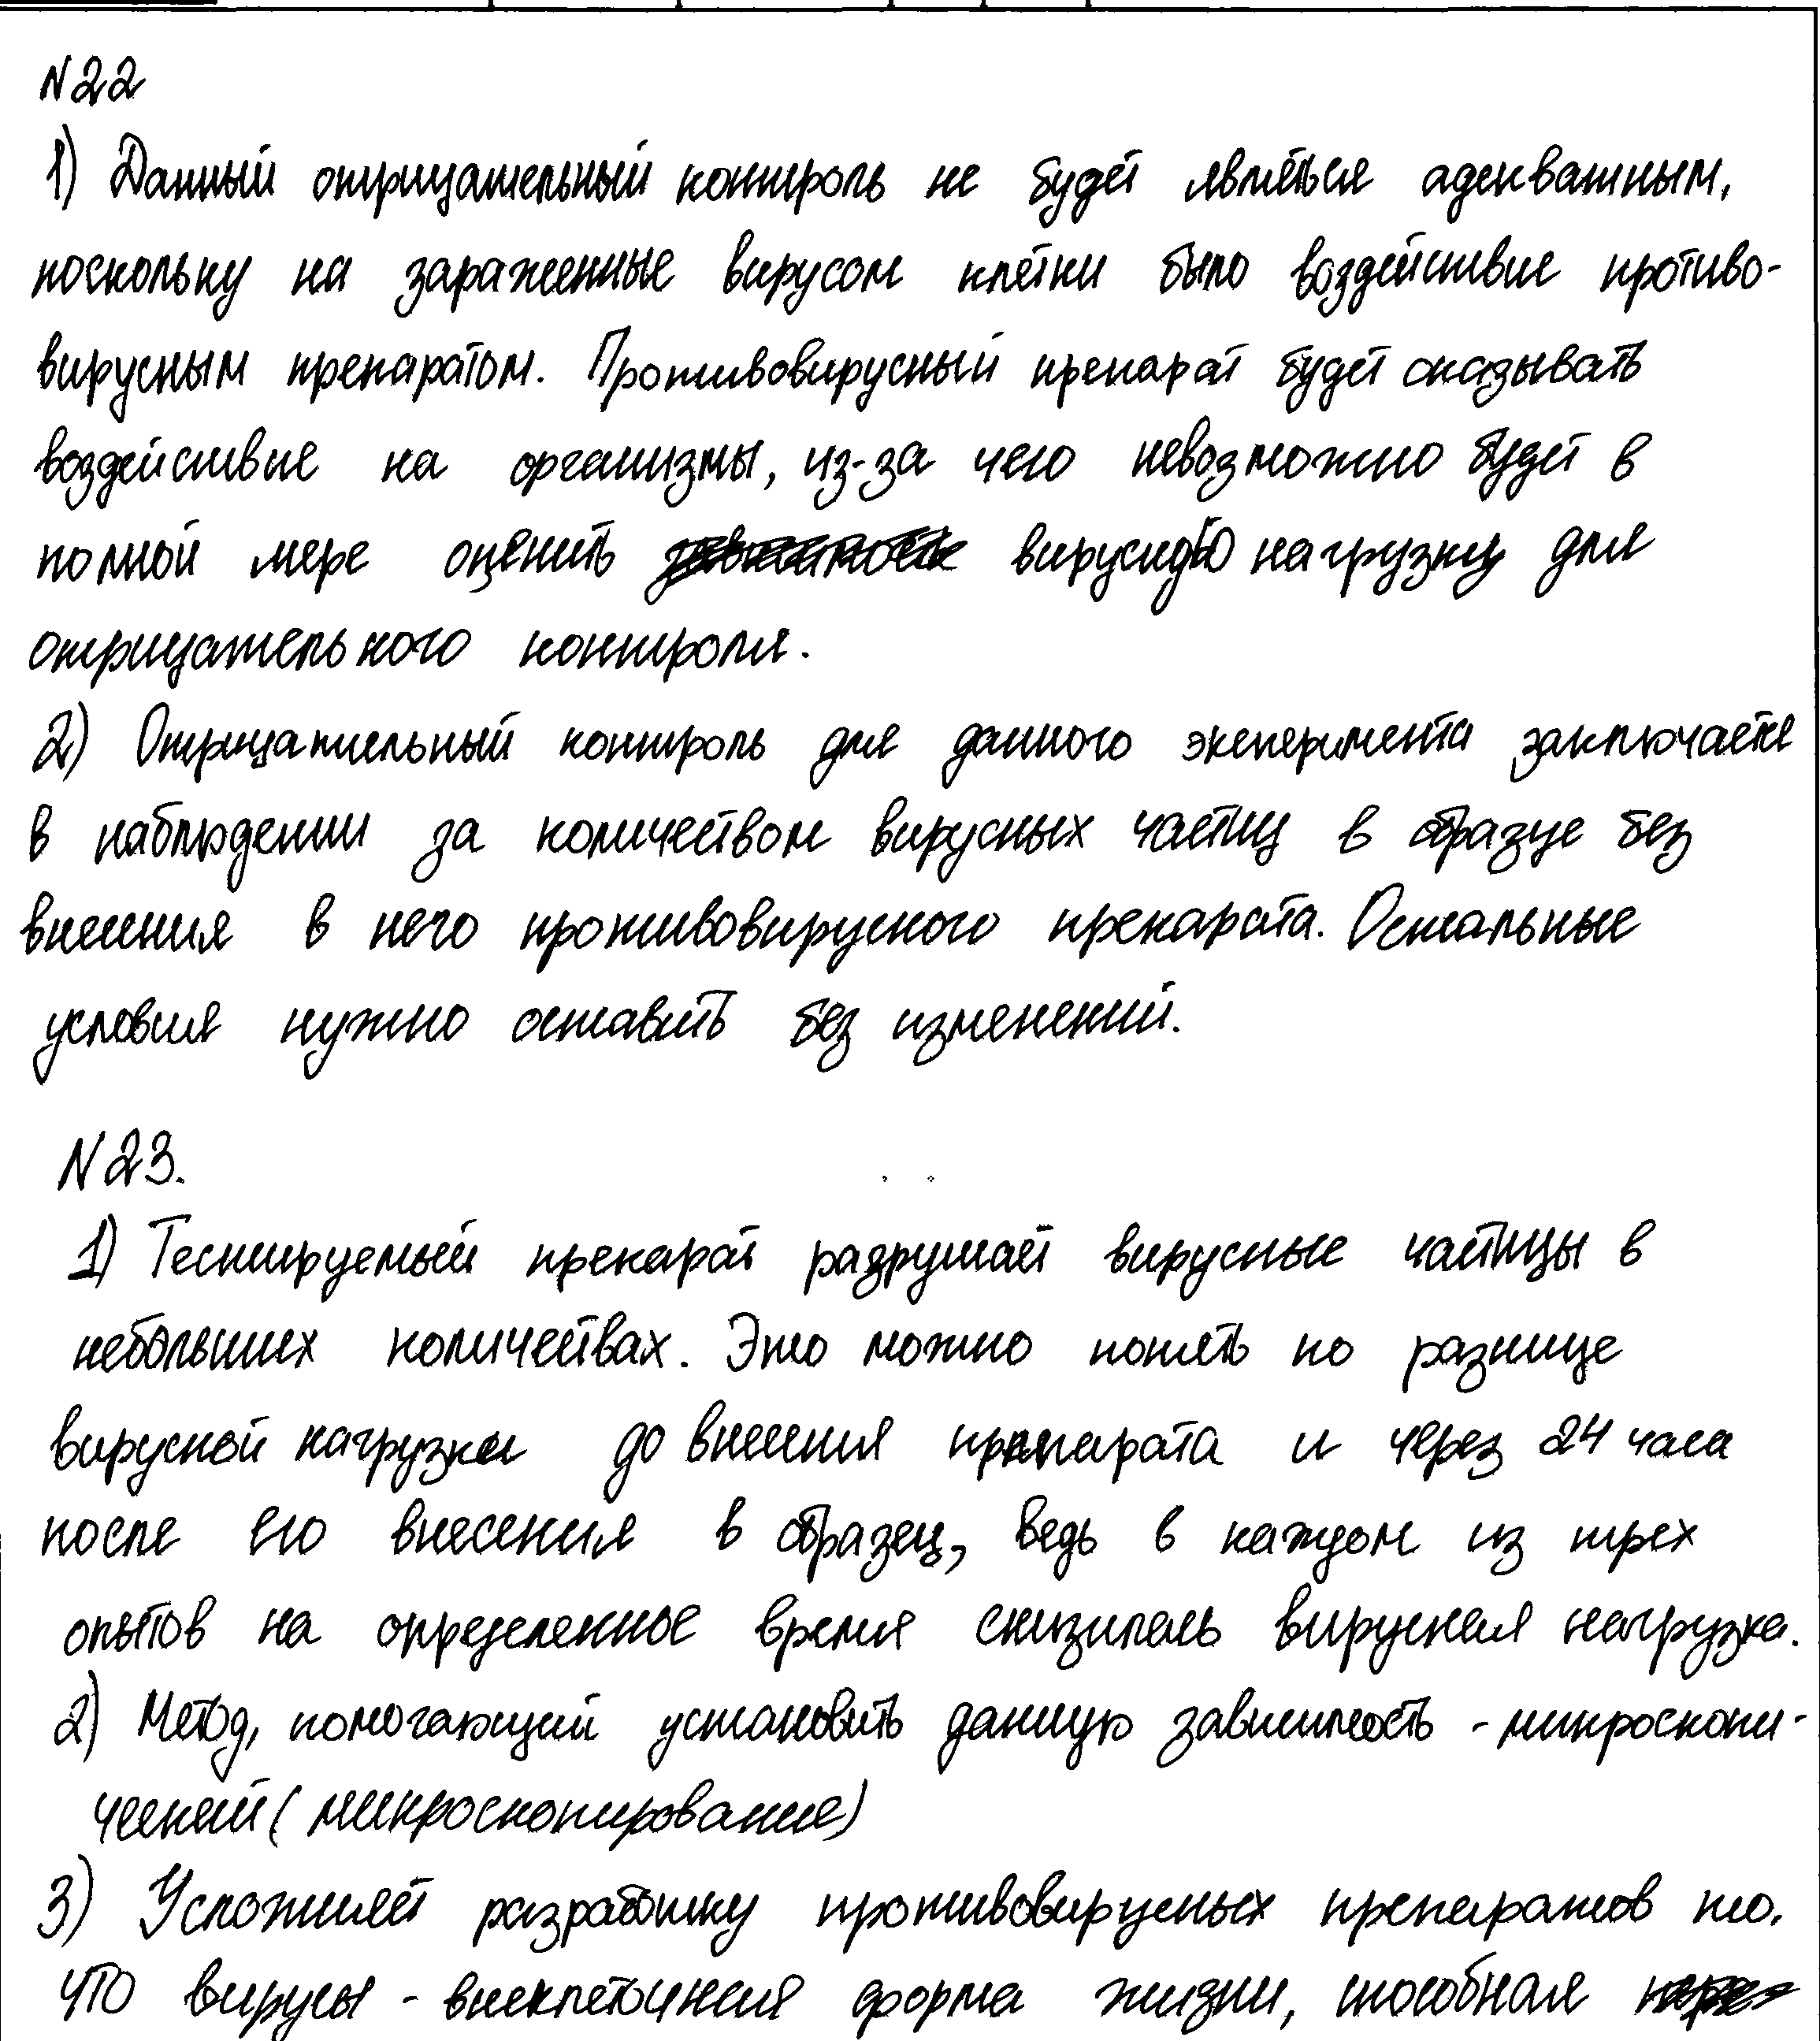 N22
1) Данный отрицательный контроль не будет являться адекватным,
поскольку на зараженные вирусом клетки было воздействие противо-
вирусным препаратом. Противовирусный препарат будет оказывать
воздействие на организмы, из-за чего невозможно будет в
полной мере оценить вирусную нагрузку для
отрицательного контроля.
2) Отрицательный контроль для данного эксперимента заключается
в наблюдении за количеством вирусных частиц в образце без
внесения в него противовирусного препарата. Остальные
условия нужно оставить без изменений.
N23.
1) Тестируемый препарат разрушает вирусные частицы в
небольших количествах. Это можно понять по разнице
вирусной нагрузки до внесения препарата и через 24 часа
после его внесения в образец, ведь в каждом из трех
опытов на определенное время снизилась вирусная нагрузка.
2) Метод, помогающий установить данную зависимость - микроскопи-
ческий (микроскопирование)
3) Усложняет разработку противовирусных препаратов то,
что вирусы - внеклеточная форма жизни, способная